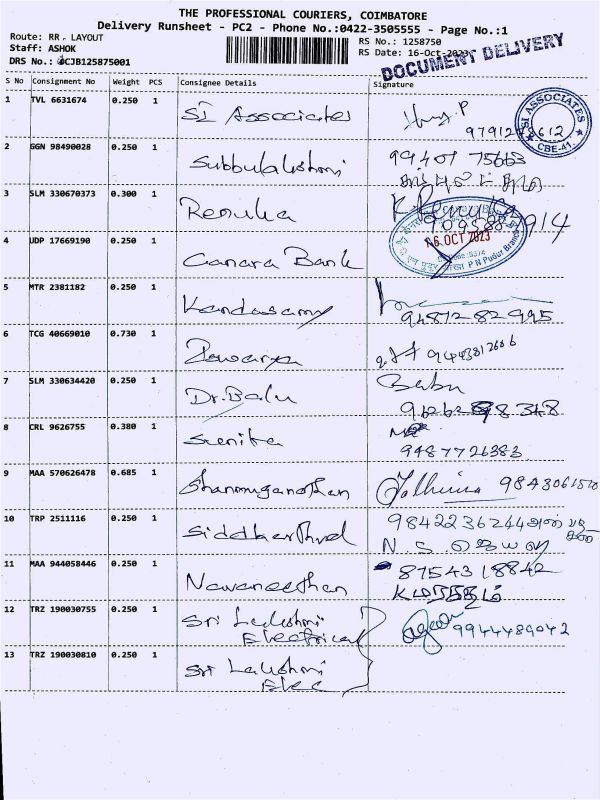 THE PROFESSIONAL COURIERS, COIMBATORE
Delivery Runsheet - PC2 - Phone No.:0422-3505555 - Page No.:1
Route: RR. LAYOUT
Staff: ASHOK
DRS No.: CJB125875001
RS No.: 1258750
RS Date: 16-Oct-2023
DOCUMENT DELIVERY
S No Consignment No Weight PCS Consignee Details Signature
1 TVL 6631674 0.250 1 SI Associates
SI ASSOCIATES
CBE-41.
2 GGN 98490028 0.250 1 Subbulakshmi 99401 75663
3 SLM 330670373 0.300 1 Renuka
16 OCT 2023
P N Pudur Branch
4 UDP 17669190 0.250 1 Canara Bank
5 MTR 2381182 0.250 1 Kandasamy
94872 82995
6 TCG 40669010 0.730 1
7 SLM 330634420 0.250 1 Dr. Balu Babu
8 CRL 9626755 0.380 1
9487726383
9 MAA 570626478 0.685 1 Shanmuganathan
10 TRP 2511116 0.250 1
9842236244
N. S.
11 MAA 944058446 0.250 1 Navaneethan 8754318842
12 TRZ 190030755 0.250 1 Sri Lakshmi
Electrical 9944489042
13 TRZ 190030810 0.250 1 Sri Lakshmi
Elec